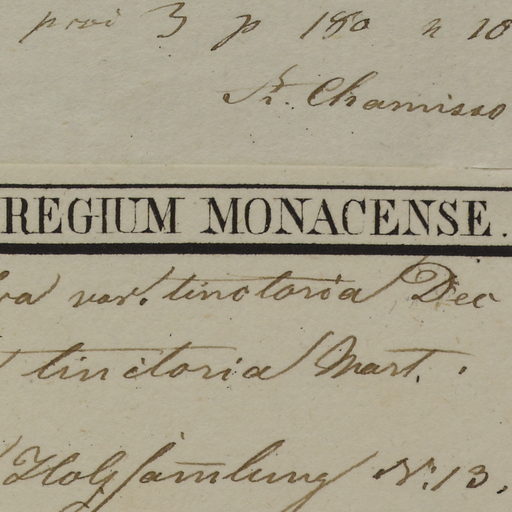 prodr 3 p 180 n 10
A. Chamisso
REGIUM MONACENSE.
var. tinctoria Dec
tinctoria Mart.
Holzsammlung N. 13.